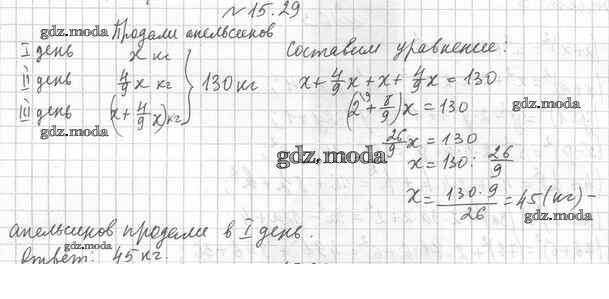 №15.29
gdz.moda Продали апельсинов
I день x кг
II день 4/9 x кг } 130 кг
III день (x + 4/9 x) кг
gdz.moda
Составим уравнение:
x + 4/9 x + x + 4/9 x = 130
(2\9 + 8/9) x = 130 gdz.moda
26/9 x = 130
gdz.moda x = 130 : 26/9
x = 130·9/26 = 45 (кг) –
gdz.moda
апельсинов продали в I день.
gdz.moda
Ответ: 45 кг.